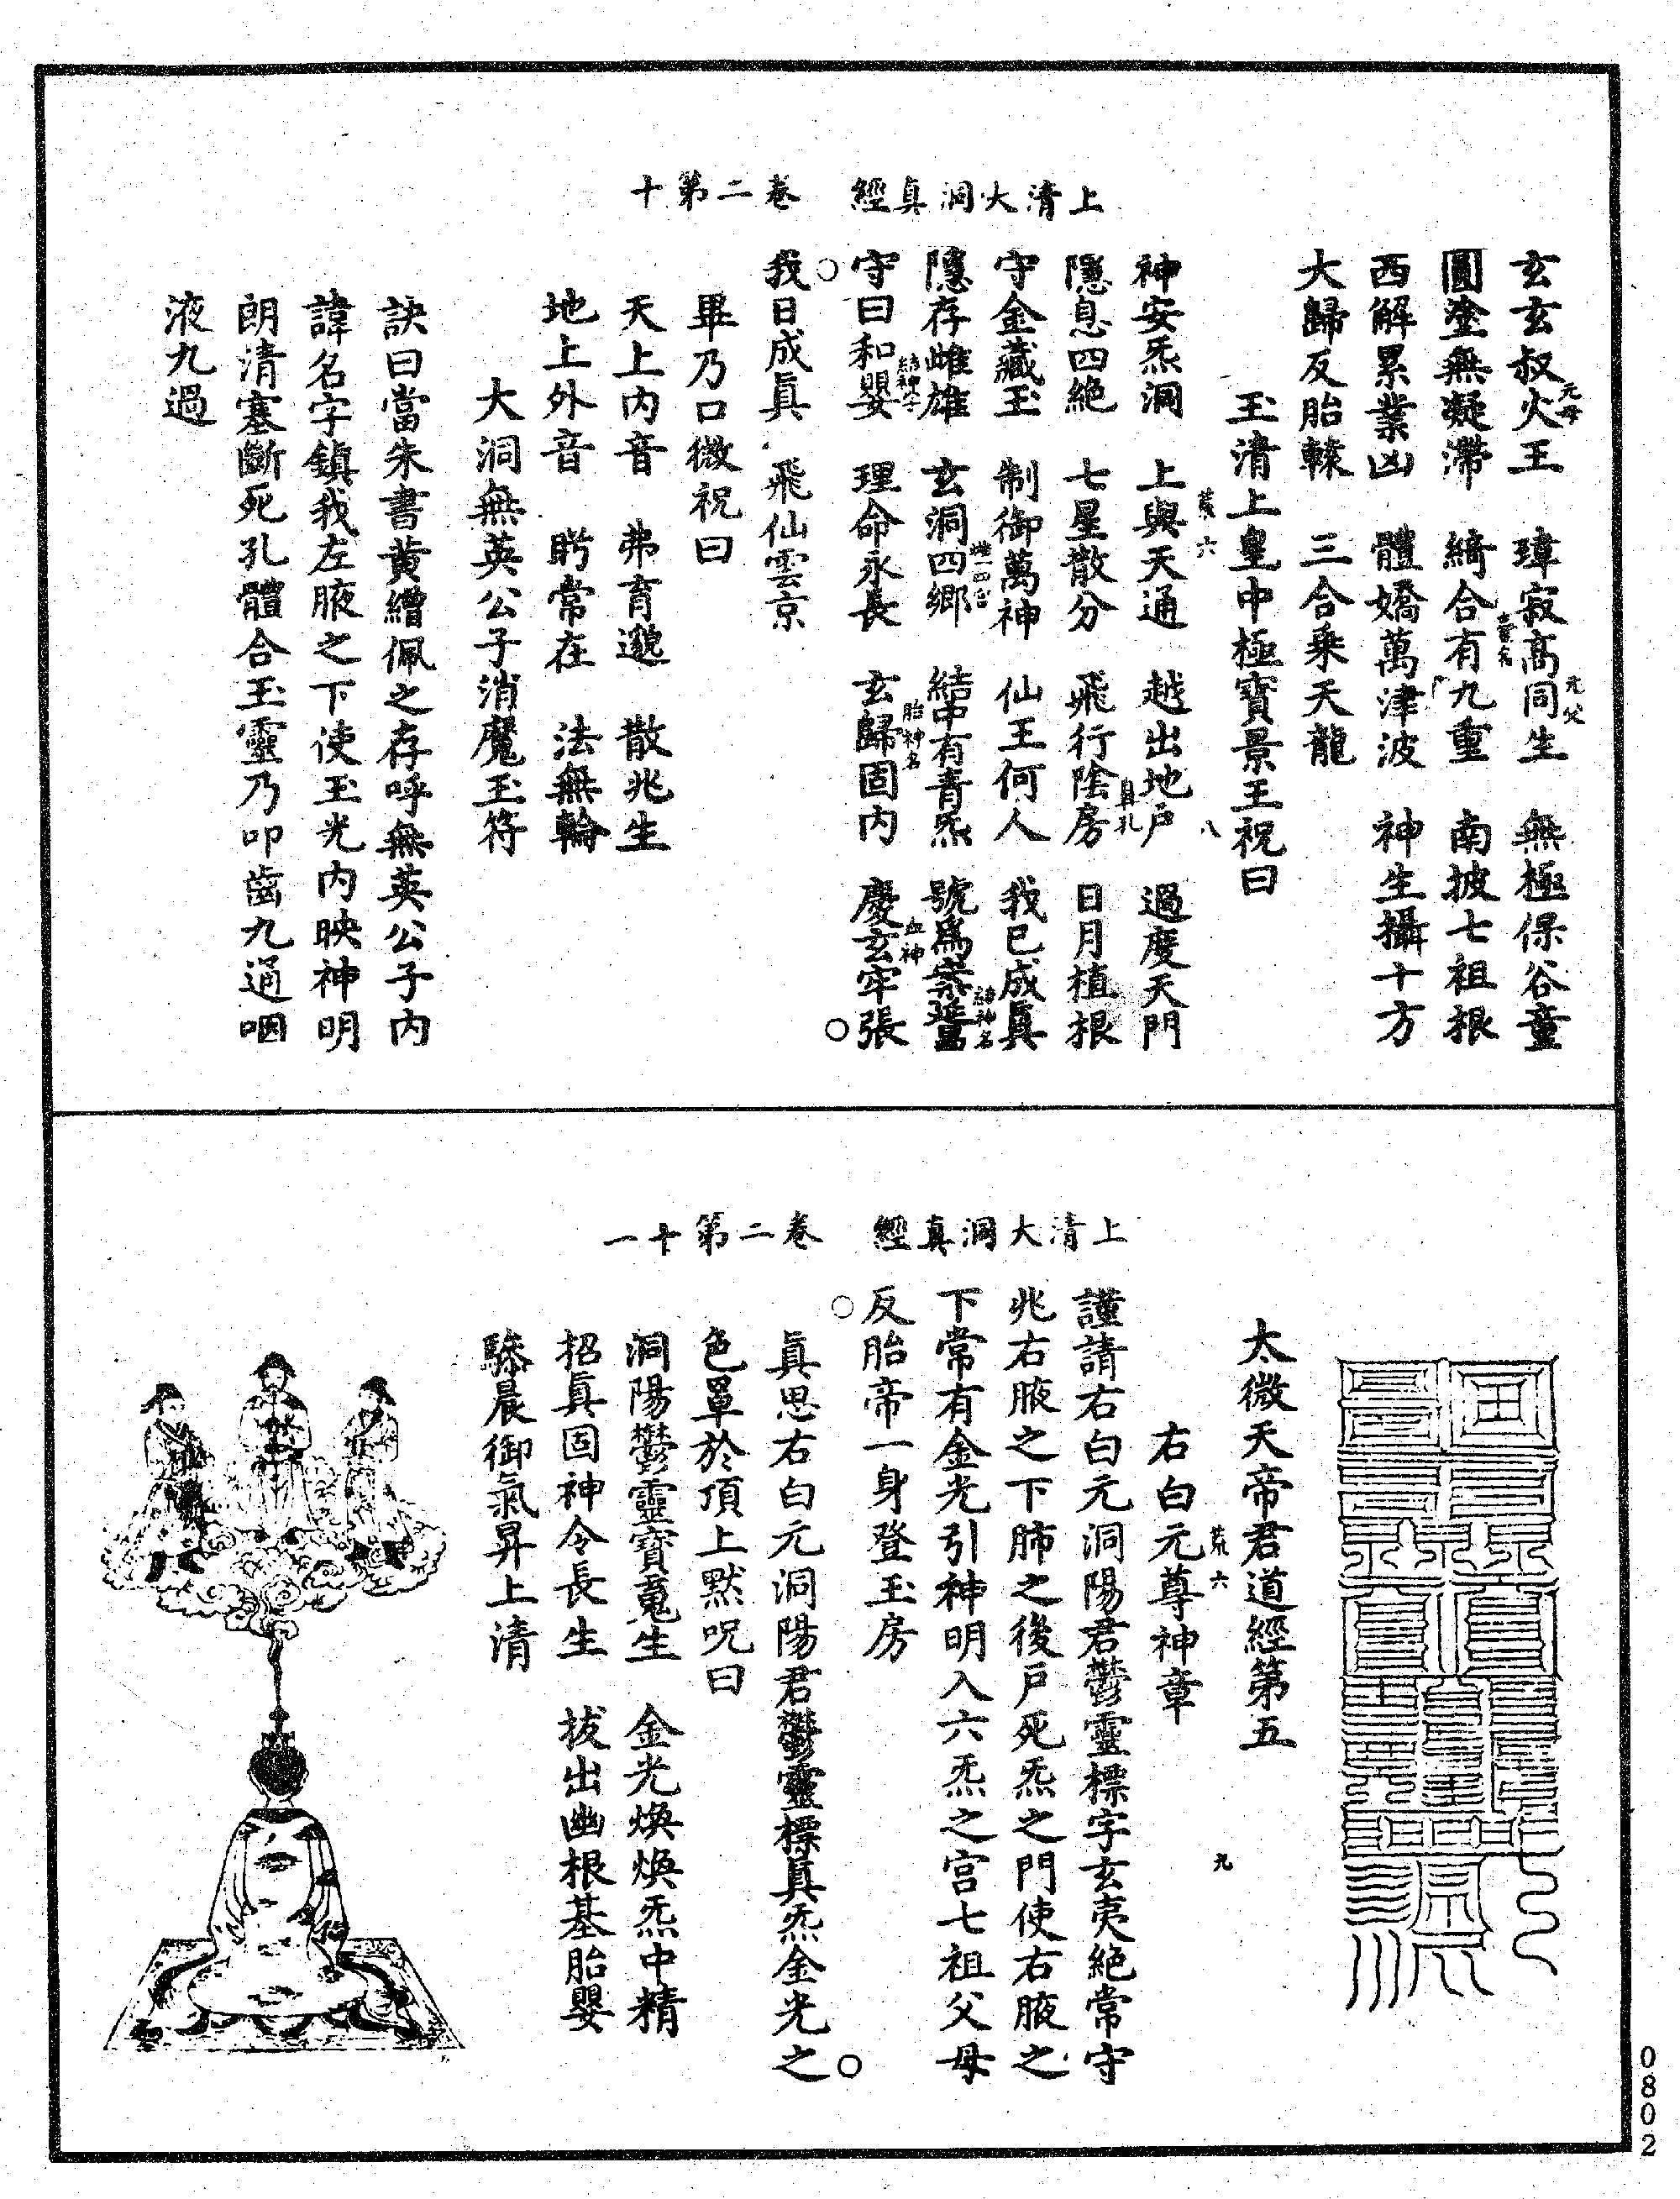 上清大洞真經　卷二第十
玄玄叔火王元母　瑋寂高同生元父　無極保谷童
圓塗無凝滯　綺合有九重　南披七祖根
西解累業凶　體矯萬津波　神生攝十方
大歸反胎䡖　三合乘天龍
玉清上皇中極寶景王祝曰
荒六　八
神安炁洞　上與天通　越出地戶　過度天門
隱息四絕　七星散分　飛行陰房鼻孔　日月植根
守金藏玉　制御萬神　仙王何人　我已成真
隱存雌雄　玄洞四鄉　結中有青炁　號為
守曰和嬰結神字　理命永長　玄歸固內胎神名　慶玄牢張血神
我日成真　飛仙雲京
畢乃口微祝曰
天上內音　弗育邈　散兆生
地上外音　眄常在　法無輪
大洞無英公子消魔玉符
訣曰當朱書黃繒佩之存呼無英公子內
諱名字鎮我左腋之下使玉光內映神明
朗清塞斷死孔體合玉靈乃叩齒九通咽
液九過
上清大洞真經　卷二第十一
太微天帝君道經第五
右白元尊神章
荒六　九
謹請右白元洞陽君鬱靈標字玄夷絕常守
兆右腋之下肺之後戶死炁之門使右腋之
下常有金光引神明入六炁之宮七祖父母
反胎帝一身登玉房
真思右白元洞陽君鬱靈標真炁金光之
色罩於頂上默呪曰
洞陽鬱靈寶魂生　金光煥煥炁中精
招真固神令長生　拔出幽根基胎嬰
驂晨御氣昇上清
0802